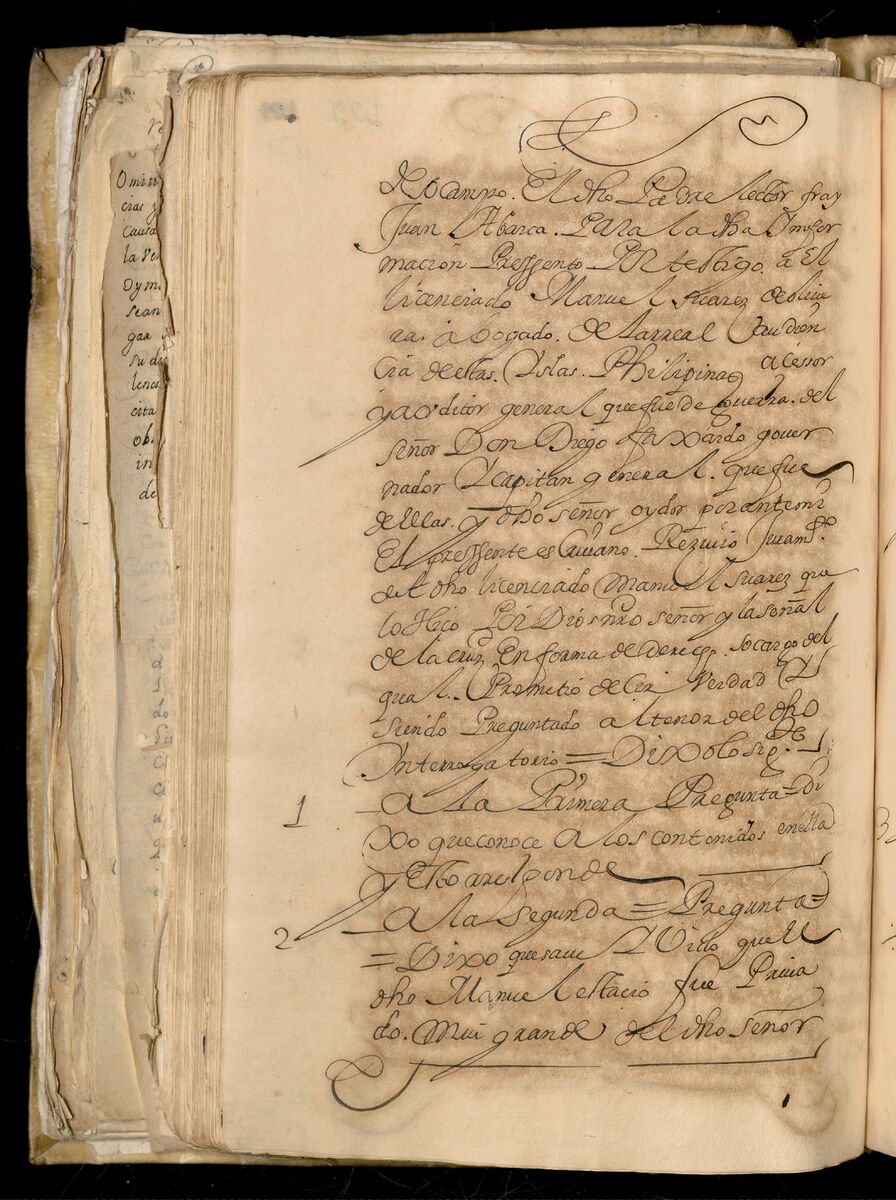 de ocampo. El dho Padre lector fray
Juan Abarca. Para la dha Ynfor
macion Pressento Por testigo. a El
licenciado Manuel Suarez de olive
ra. abogado. de la rreal Audien
cia de estas. Yslas. Philipinas acessor
y aoditor general que fue de guerra. del
señor Don Diego faxardo gouer
nador Y capitan general. que fue
de ellas. y dho señor oydor por ante mi
El pressente escriuano. Reziuio Juramto.
del dho licenciado Manuel Suarez que
lo Hiço Por Dios nro señor y la señal
de la cruz En forma de derecho. so cargo del
qual. Prometio decir Verdad Y
siendo Preguntado al tenor del dho
Ynterrogatorio = Dixo lo sigte.
1 A la Primera Pregunta = di
xo que conoce a los contenidos en ella
y Esto aresponde
2 A la segunda = Pregunta =
= Dixo que saue Y Vido que El
dho Manuel estacio fue Priua
do. mui grande del dho señor
Omiti
cias y
causa
la Ve
Dy m
sean
gar
su d
lenc
cita
ob
in
de